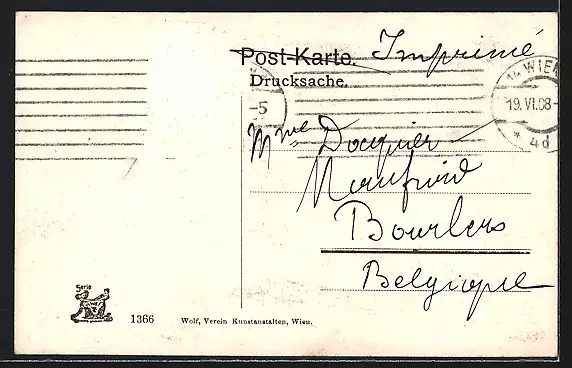 Post-Karte. Imprimé
Drucksache.
WIEN
19. VI. 08
* 4d
-5
Mme Docquier
Bourlers
Belgique
Serie
1366 Wolf, Verein Kunstanstalten, Wien.